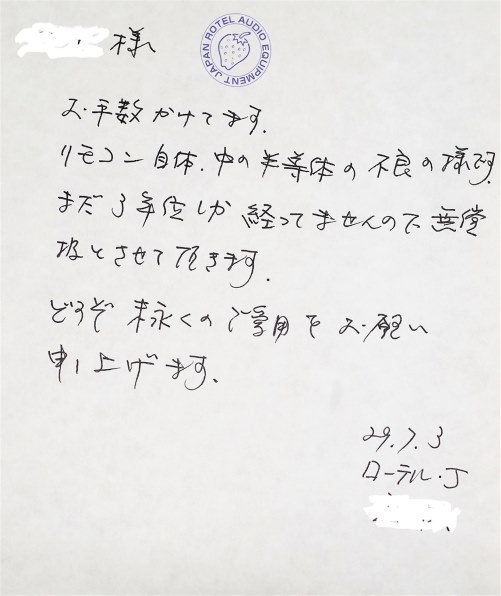 様
JAPAN ROTEL AUDIO EQUIPMENT
お手数かけてます.
リモコン自体.中の半導体の不良の様です.
まだ3年位しか経ってませんので無償
扱とさせて頂きます.
どうぞ末永くのご愛用をお願い
申し上げます.
29.7.3
ローテル・J